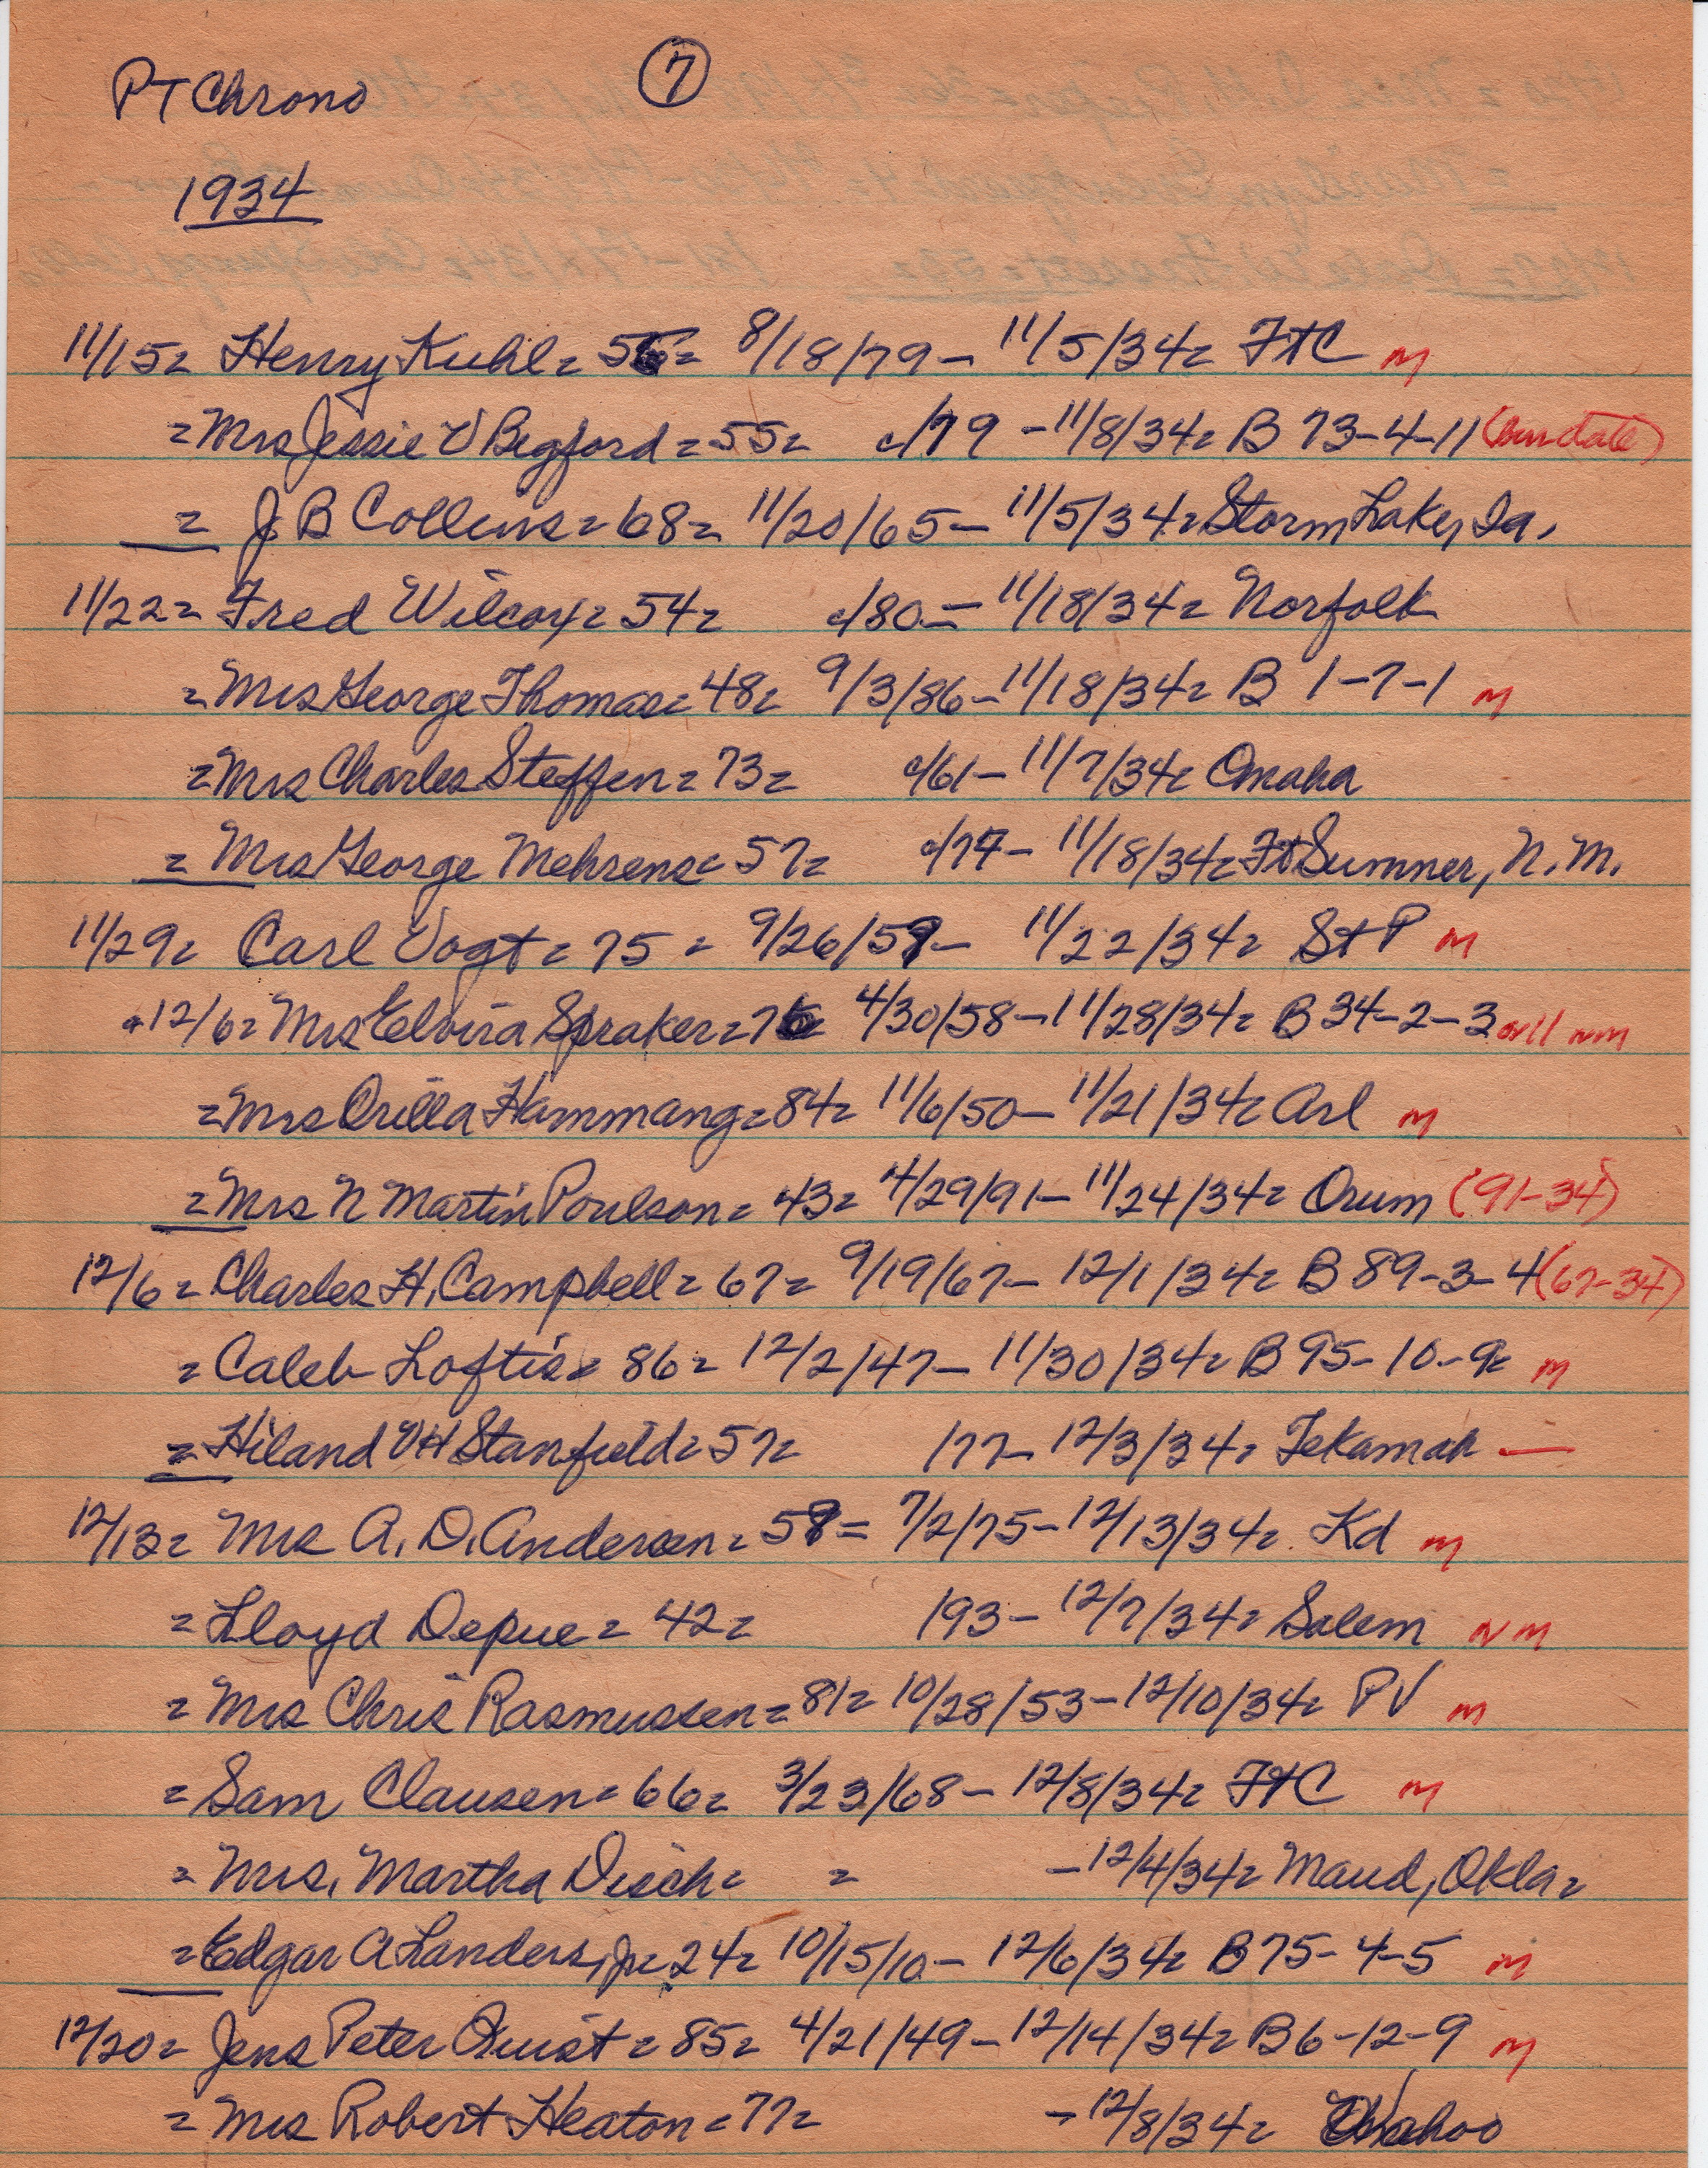 PT Chrono 7
1934
11/15= Henry Kuhl= 55= 8/18/79- 11/5/34= FtC m
=Mrs Jessie V Begford=55= c/79 -11/8/34= B 73-4-11 (bur date)
= J B Collins=68= 11/20/65- 11/5/34= Storm Lake, Ia.
11/22= Fred Wilcox= 54= c/80- 11/18/34= Norfolk
=Mrs George Thomas=48= 9/3/86-11/18/34= B 1-7-1 m
=Mrs Charles Steffen=73= c/61- 11/7/34= Omaha
=Mrs George Mehrens=57= c/77- 11/18/34= Ft Sumner, N.M.
11/29= Carl Vogt=75= 9/26/59- 11/22/34= St P m
+12/6= Mrs Elvira Spraker=76= 4/30/58-11/28/34= B 34-2-3 or 11 nm
=Mrs Orilla Hammang=84= 11/6/50-11/21/34= Arl m
=Mrs N Martin Poulson=43= 4/29/91-11/24/34= Orum (91-34)
12/6= Charles H. Campbell=67= 9/19/67-12/1/34= B 89-3-4 (67-34)
=Caleb Loftis=86= 12/2/47- 11/30/34= B 95-10-9= m
=Hiland VH Stanfield=57= /77- 12/3/34= Tekamah —
12/13= Mrs A. D. Andersen=59= 7/2/75-12/13/34= Kd m
=Lloyd Depue=42= /93- 12/7/34= Salem nm
=Mrs Chris Rasmussen=81= 10/28/53-12/10/34= PV m
=Sam Clausen=66= 3/23/68- 12/8/34= FtC m
=Mrs. Martha Disch= = -12/4/34= Maud, Okla=
=Edgar A Landers, Jr=24= 10/15/10- 12/6/34= B75-4-5 m
12/20= Jens Peter Quist=85= 4/21/49-12/14/34= B6-12-9 m
=Mrs Robert Heaton=77= -12/8/34= Wahoo